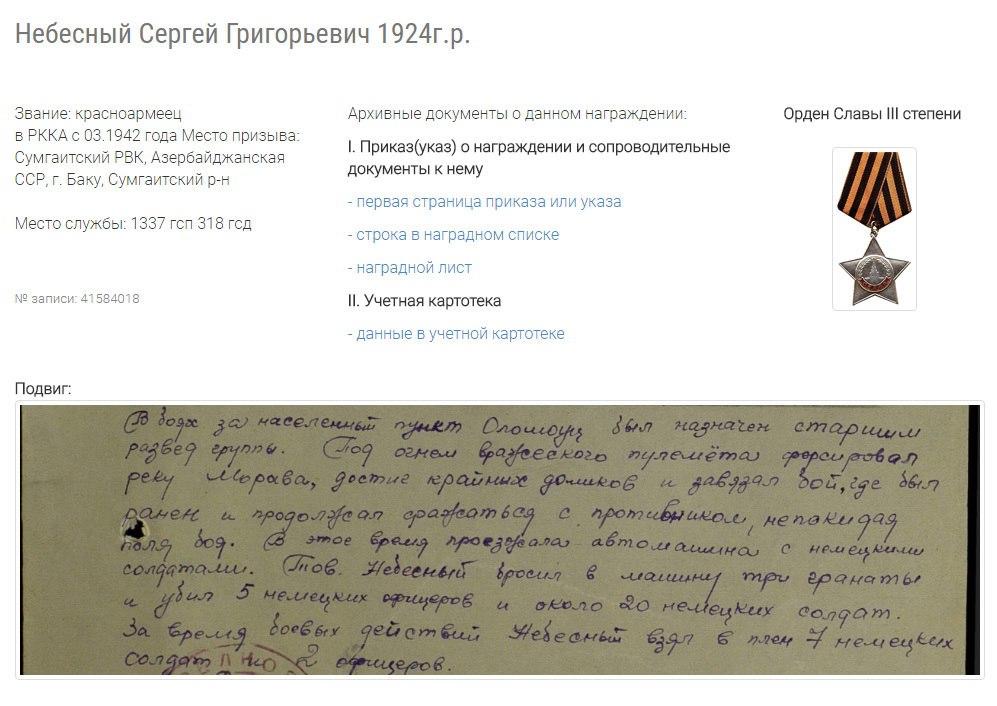 Небесный Сергей Григорьевич 1924г.р.
Звание: красноармеец
в РККА с 03.1942 года Место призыва:
Сумгаитский РВК, Азербайджанская
ССР, г. Баку, Сумгаитский р-н
Место службы: 1337 гсп 318 гсд
№ записи: 41584018
Архивные документы о данном награждении:
I. Приказ(указ) о награждении и сопроводительные
документы к нему
- первая страница приказа или указа
- строка в наградном списке
- наградной лист
II. Учетная картотека
- данные в учетной картотеке
Орден Славы III степени
Подвиг:
В боях за населенный пункт Оломоуц был назначен старшим
развед группы. Под огнем вражеского пулемёта форсировал
реку Морава, достиг крайных домиков и завязал бой, где был
ранен и продолжал сражаться с противником, непокидая
поля боя. В этое время проезжала автомашина с немецкими
солдатами. Тов. Небесный бросил в машину три гранаты
и убил 5 немецких офицеров и около 20 немецких солдат.
За время боевых действий Небесный взял в плен 7 немецких
солдат и 2 офицеров.